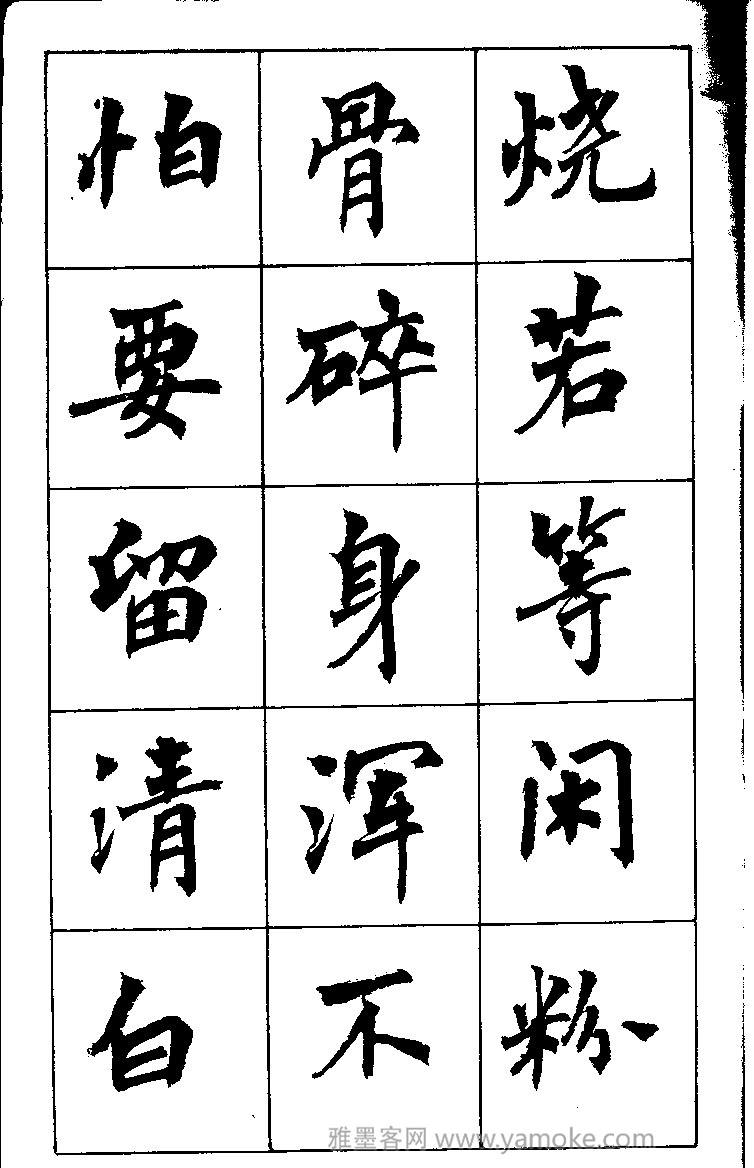 烧若等闲粉
骨碎身浑不
怕要留清白
雅墨客网 www.yamoke.com